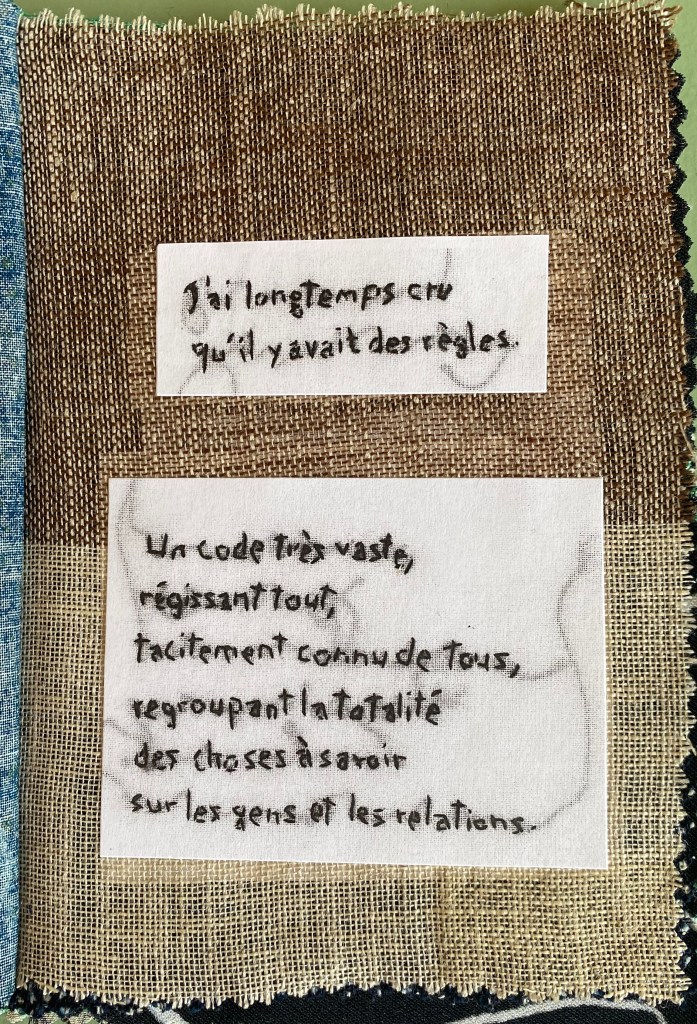 J'ai longtemps cru
qu'il y avait des règles.
Un code très vaste,
régissant tout,
tacitement connu de tous,
regroupant la totalité
des choses à savoir
sur les gens et les relations.